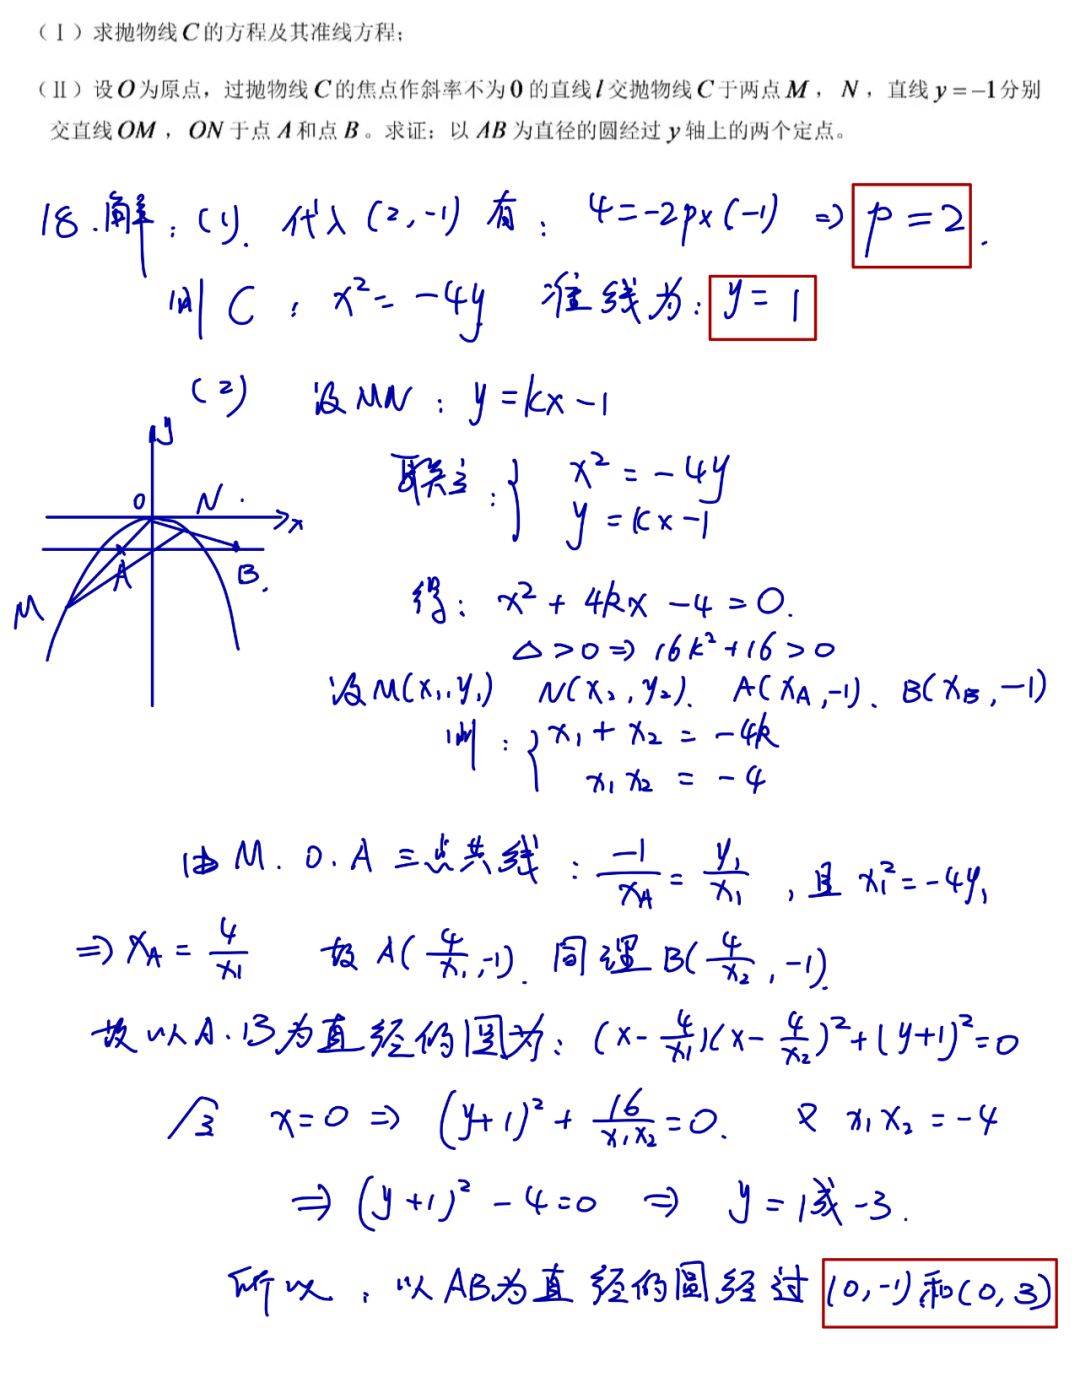 （Ⅰ）求抛物线C的方程及其准线方程；
（Ⅱ）设O为原点，过抛物线C的焦点作斜率不为0的直线l交抛物线C于两点M，N，直线y=-1分别
交直线OM，ON于点A和点B。求证：以AB为直径的圆经过y轴上的两个定点。
18.解：(1). 代入(2,-1)有：4=-2p×(-1) ⇒ p=2.
则C：x²=-4y 准线为：y=1
(2) 设MN：y=kx-1
联立：{ x²=-4y
y=kx-1
得：x²+4kx-4=0.
△>0⇒16k²+16>0
设M(x₁,y₁) N(x₂,y₂). A(x_A,-1). B(x_B,-1)
则：{ x₁+x₂=-4k
x₁x₂=-4
y
O N.
x
A B.
M
由M.O.A三点共线：-1/x_A=y₁/x₁，且x₁²=-4y₁
⇒x_A=4/x₁ 故A(4/x₁,-1). 同理B(4/x₂,-1).
故以A.B为直径的圆为：(x-4/x₁)(x-4/x₂)²+(y+1)²=0
令 x=0⇒(y+1)²+16/x₁x₂=0. 又x₁x₂=-4
⇒(y+1)²-4=0 ⇒ y=1或-3.
所以，以AB为直径的圆经过(0,-1)和(0,3)